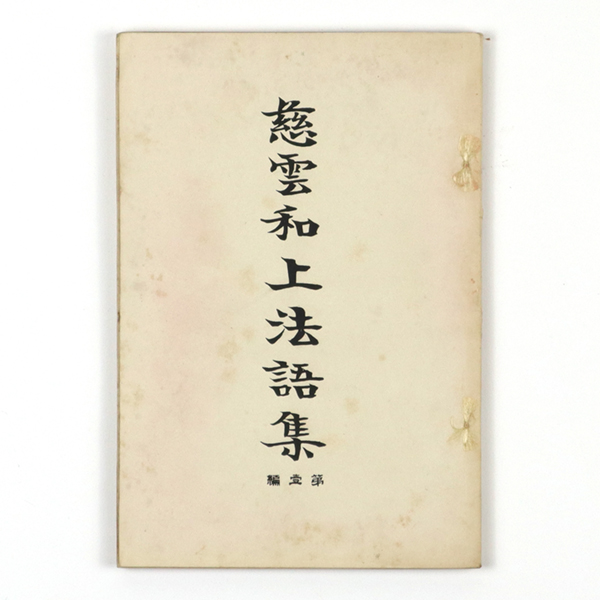 慈雲和上法語集
第壹編